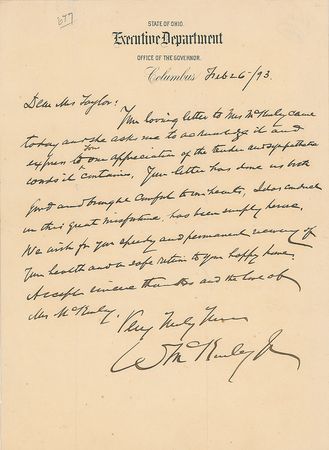 677
STATE OF OHIO.
Executive Department
OFFICE OF THE GOVERNOR.
Columbus Feb 26/93.
Dear Mrs Taylor:
Your loving letter to Mrs McKinley came
today and she asks me to acknowledge it and
express to you our appreciation of the tender and sympathetic
words it contains. Your letter has done us both
good and brought comfort to our hearts,
in this great misfortune, has been
We wish for you speedy and permanent recovery of
Your health and a safe return to your happy home.
Accept sincere thanks and the love of
Mrs McKinley.
Very Truly Yours
W McKinley Jr